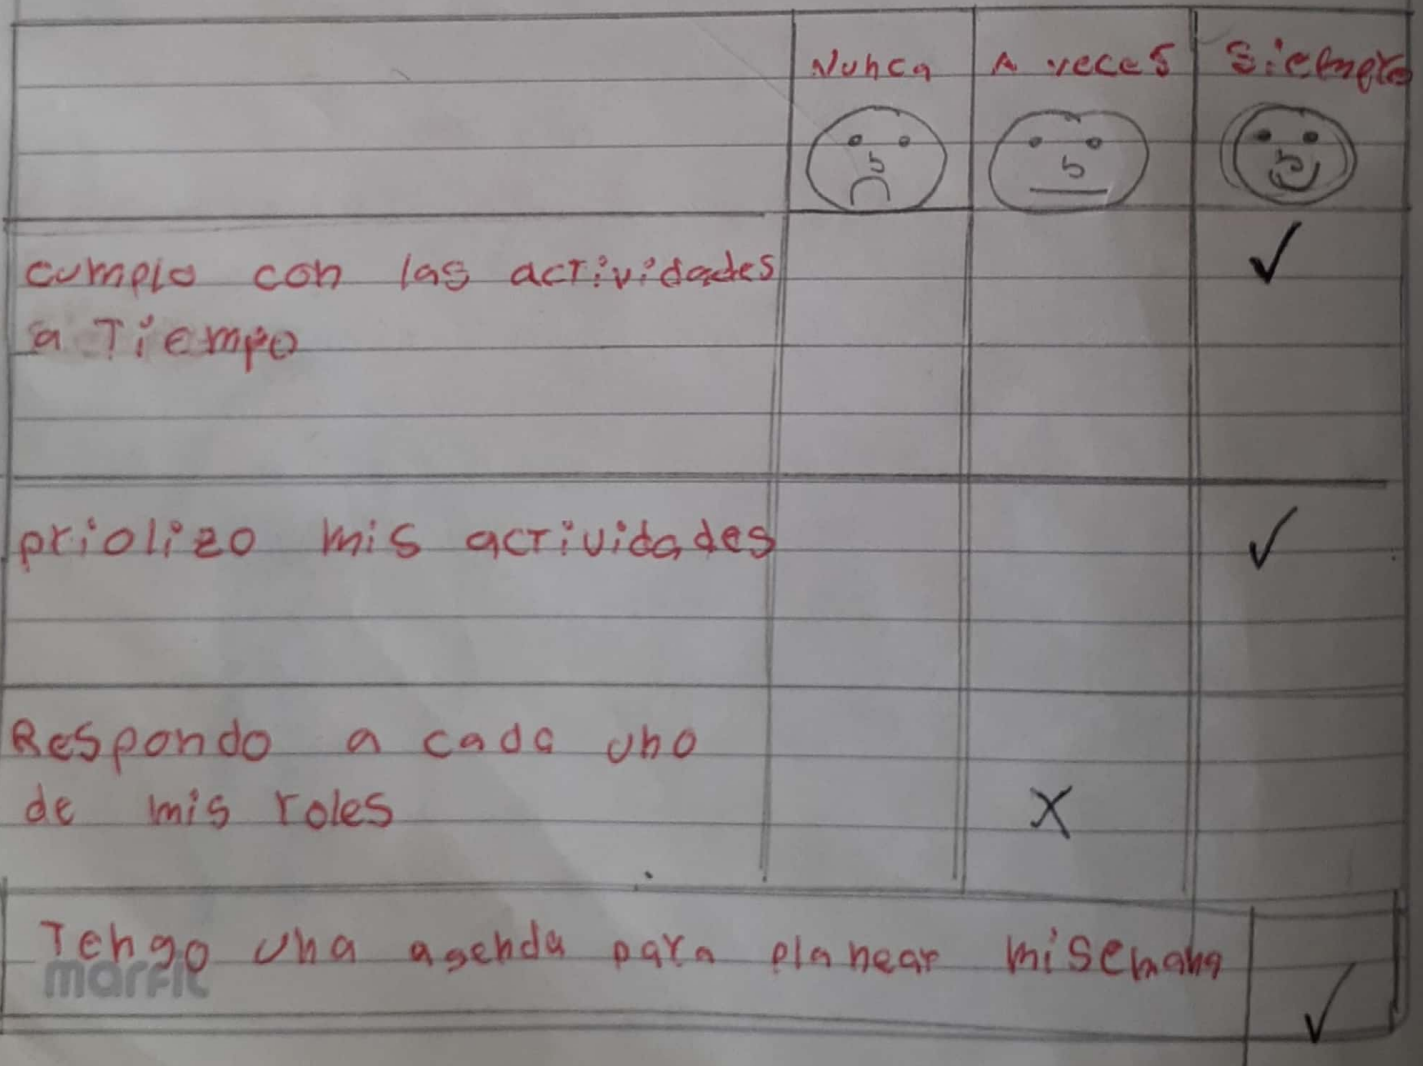 Nunca A veces Siempre
cumplo con las actividades
a Tiempo
✓
priolizo mis actividades ✓
Respondo a cada uno
de mis roles X
Tengo una agenda para planear mi semana ✓
marfil